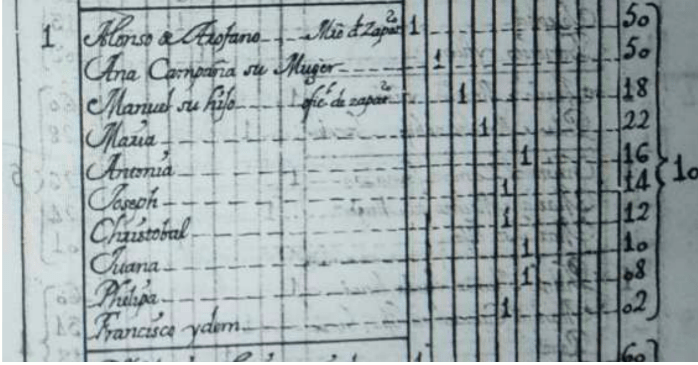 1 Alonso de Arofano Mro d Zapato 1 50
Ana Campaña su Muger 1 50
Manuel su hijo ofiel de zapato 1 18
Maria 1 22
Antonia 1 16
Joseph 1 14 10
Christobal 1 12
Juana 1 10
Phelipa 1 08
Francisco ydem 1 02
1 60